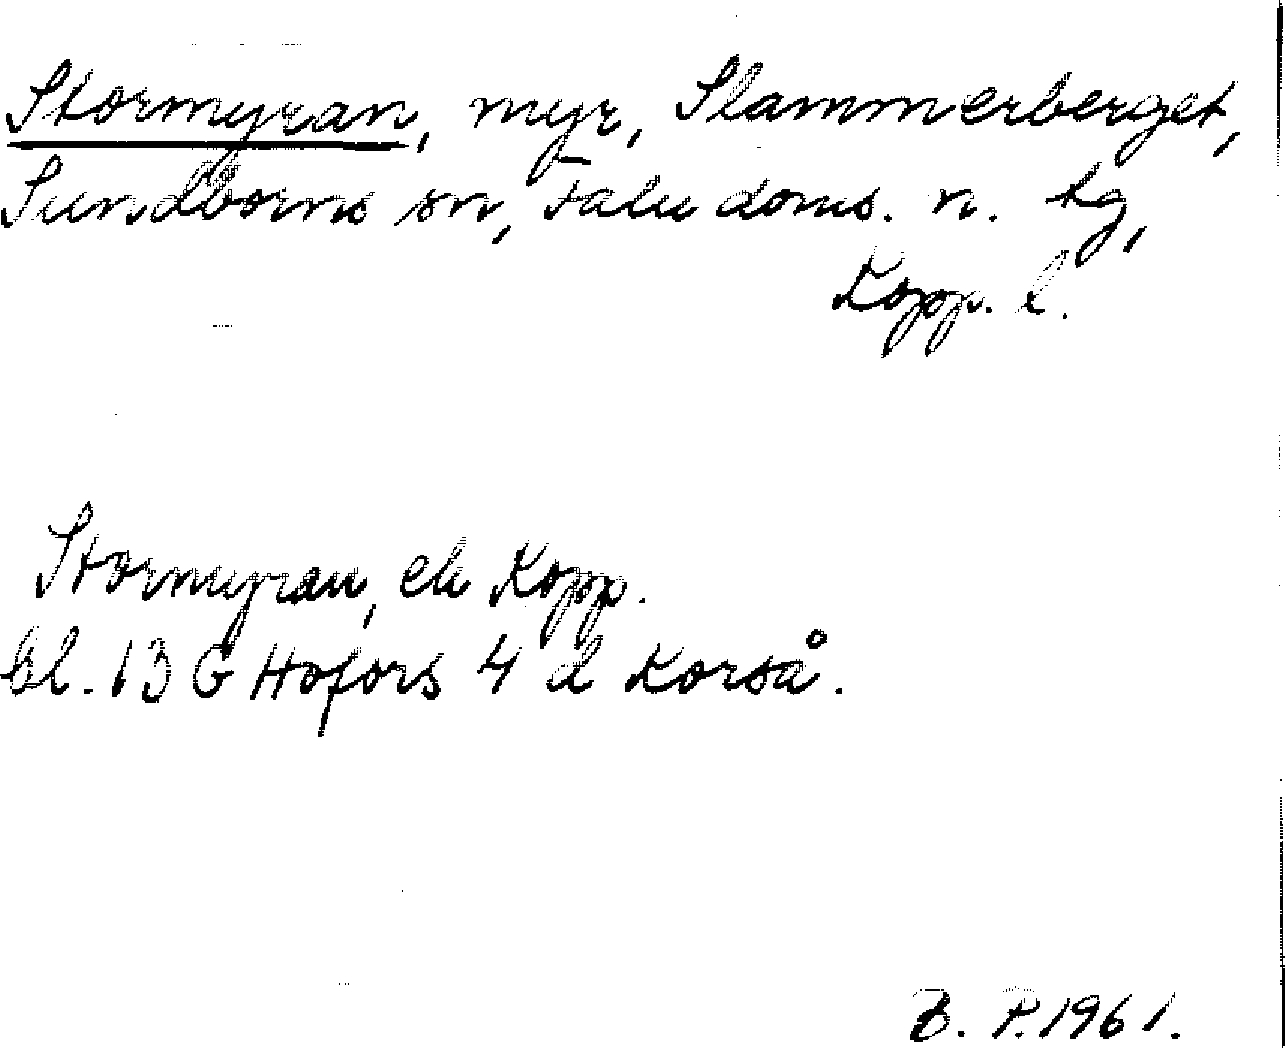 Stormyran, myr, Slammerberget,
Sundborns sn, Falu doms. n. tg,
Kopp. l.
Stormyran, ek Kopp.
bl. 13 G Hofors 4 d Korså.
B. P. 1961.